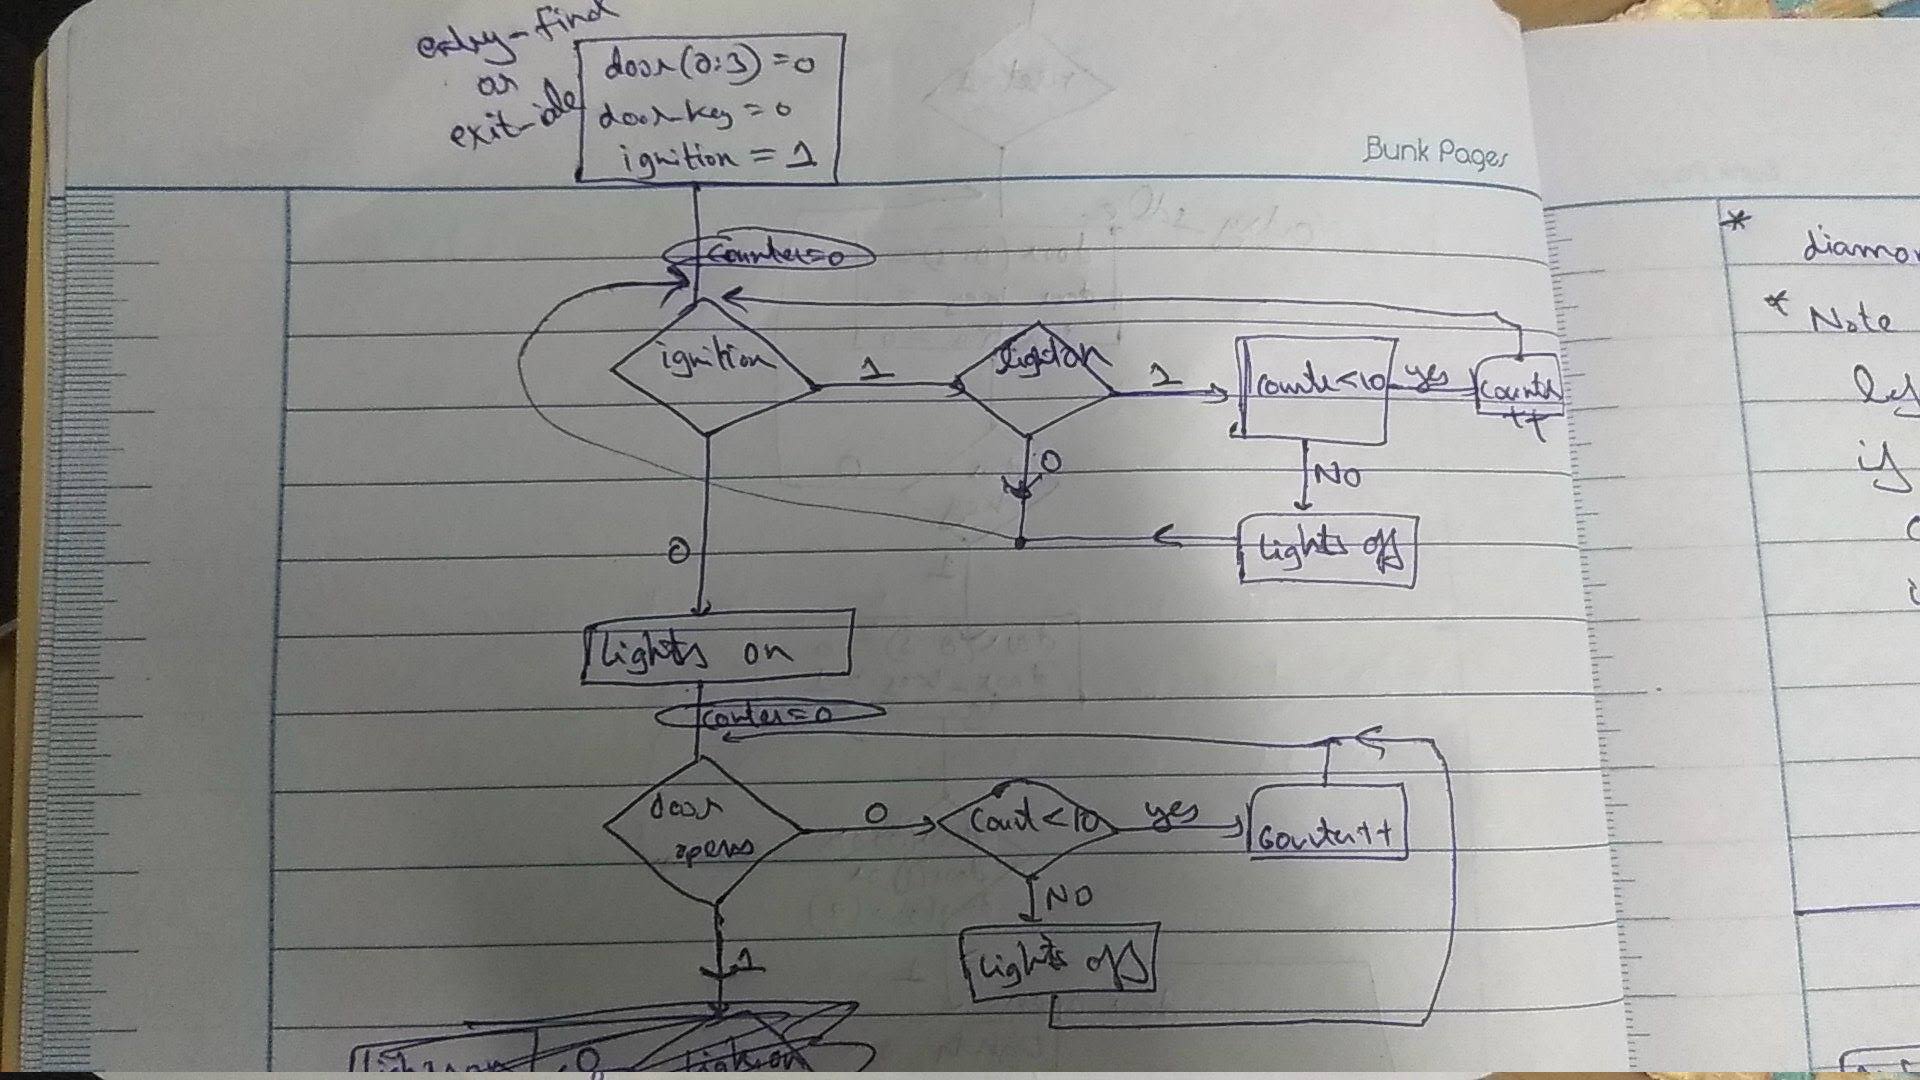 entry-find
or
exit-idle
door(0:3)=0
door-key=0
ignition = 1
Bunk Pages
counter=0
ignition
1
lights on
1
counter<10
yes
counter
++
0
NO
0
lights off
lights on
counter=0
door
opens
0
count<10
yes
counter++
NO
lights off
1
0
*
*
Note
if